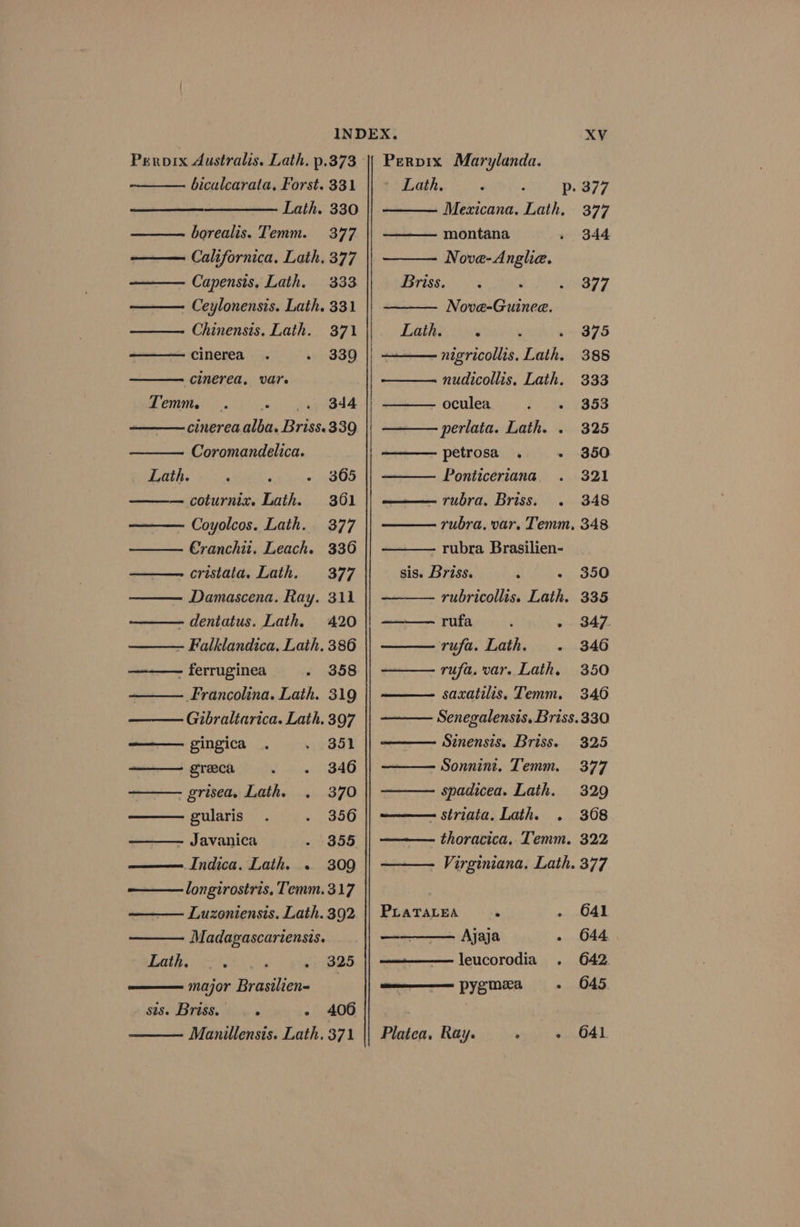 INDEX. XV
Perdix Australis. Lath. p.373
——— bicalcarata. Forst. 331
——— ——— Lath. 330
——— borealis. Temm. 377
——— Californica. Lath. 377
——— Capensis. Lath. 333
——— Ceylonensis. Lath. 331
——— Chinensis. Lath. 371
——— cinerea . . 339
——— cinerea, var.
Temm. . . . 344
——— cinerea alba. Briss. 339
——— Coromandelica.
Lath. . . . 365
——— coturnix. Lath. 361
——— Coyolcos. Lath. 377
——— Cranchii. Leach. 336
——— cristata. Lath. 377
——— Damascena. Ray. 311
——— dentatus. Lath. 420
——— Falklandica. Lath. 386
——— ferruginea . 358
——— Francolina. Lath. 319
——— Gibraltarica. Lath. 397
——— gingica . . 351
——— græca . . 346
——— grisea. Lath. . 370
——— gularis . . 356
——— Javanica . 355
——— Indica. Lath. . 309
——— longirostris. Temm. 317
——— Luzoniensis. Lath. 392
——— Madagascariensis.
Lath. . . . 325
——— major Brasilien-
sis. Briss. . . 406
——— Manillensis. Lath. 371
Perdix Marylanda.
Lath. . . p. 377
——— Mexicana. Lath. 377
——— montana . 344
——— Novæ-Angliæ.
Briss. . . . 377
——— Novæ-Guineæ.
Lath. . . . 375
——— nigricollis. Lath. 388
——— nudicollis. Lath. 333
——— oculea . . 353
——— perlata. Lath. . 325
——— petrosa . . 350
——— Ponticeriana . 321
——— rubra. Briss. . 348
——— rubra, var. Temm. 348
——— rubra Brasilien-
sis. Briss. . . 350
——— rubricollis. Lath. 335
——— rufa . . 347
——— rufa. Lath. . 346
——— rufa, var. Lath. 350
——— saxatilis. Temm. 346
——— Senegalensis. Briss. 330
——— Sinensis. Briss. 325
——— Sonnini. Temm. 377
——— spadicea. Lath. 329
——— striata. Lath. . 368
——— thoracica. Temm. 322
——— Virginiana. Lath. 377
Platalea . . 641
——— Ajaja . 644
——— leucorodia . 642
——— pygmæa . 645
Platea. Ray. . . 641